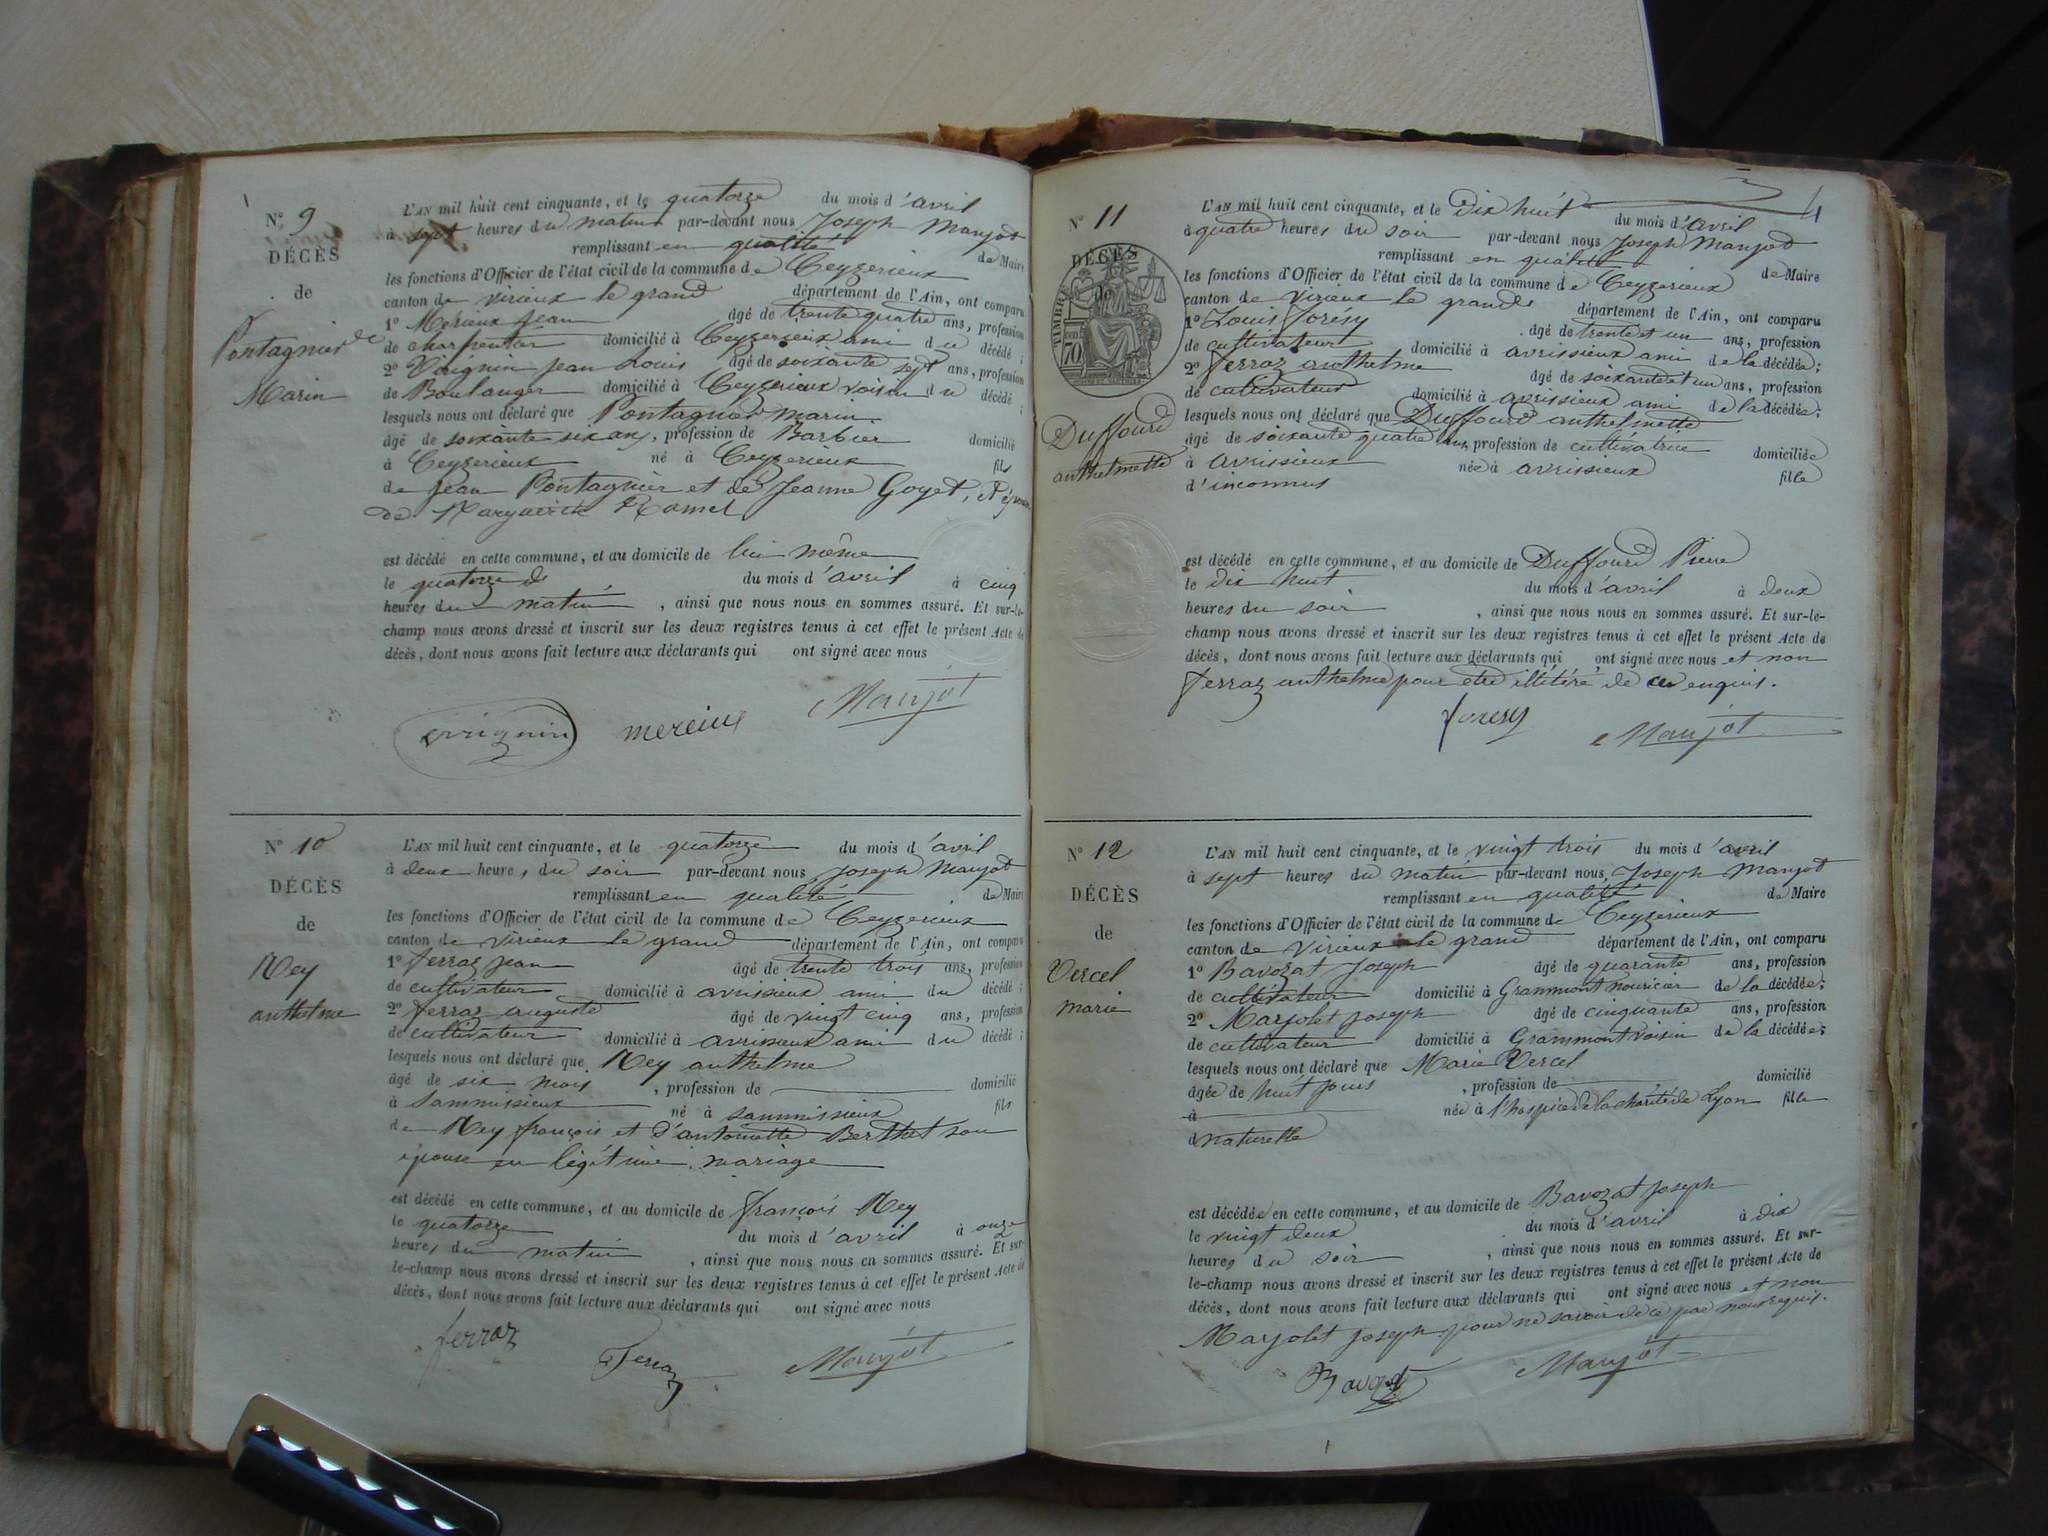 N° 9
DÉCÈS
de
Pontagnier
Marin
L'AN mil huit cent cinquante, et le quatorze du mois d'avril
à sept heures du matin par-devant nous Joseph Maujot
remplissant en qualité de Maire
les fonctions d'Officier de l'état civil de la commune de Ceyzerieux
canton de virieux le grand département de l'Ain, ont comparu
1° Mérieux Jean âgé de trente quatre ans, profession
de charpentier domicilié à Ceyzerieux ami du décédé ;
2° Voignin Jean Louis âgé de soixante sept ans, profession
de Boulanger domicilié à Ceyzerieux voisin du décédé ;
lesquels nous ont déclaré que Pontagnier marin
âgé de soixante six ans, profession de Barbier domicilié
à Ceyzerieux né à Ceyzerieux fils
de Jean Pontagnier et de Jeanne Goyet, et époux
de Marguerite Ramel
est décédé en cette commune, et au domicile de lui même
le quatorze du mois d'avril à cinq
heures du matin, ainsi que nous nous en sommes assuré. Et sur-le-
champ nous avons dressé et inscrit sur les deux registres tenus à cet effet le présent Acte de
décès, dont nous avons fait lecture aux déclarants qui ont signé avec nous
mereiux Maujot
N° 10
DÉCÈS
de
Rey
anthelme
L'AN mil huit cent cinquante, et le quatorze du mois d'avril
à deux heures du soir par-devant nous Joseph Maujot
remplissant en qualité de Maire
les fonctions d'Officier de l'état civil de la commune de Ceyzerieux
canton de virieux le grand département de l'Ain, ont comparu
1° ferraz jean âgé de trente trois ans, profession
de cultivateur domicilié à avrissieux ami du décédé ;
2° ferraz auguste âgé de vingt cinq ans, profession
de cultivateur domicilié à avrissieux ami du décédé ;
lesquels nous ont déclaré que Rey anthelme
âgé de six mois, profession de domicilié
à Sammissieux né à Sammissieux fils
de Rey françois et d'antoinette Berthet son
épouse en légitime mariage
est décédé en cette commune, et au domicile de françois Rey
le quatorze du mois d'avril à onze
heures du matin, ainsi que nous nous en sommes assuré. Et sur-
le-champ nous avons dressé et inscrit sur les deux registres tenus à cet effet le présent Acte de
décès, dont nous avons fait lecture aux déclarants qui ont signé avec nous
ferraz ferraz Maujot
N° 11
DÉCÈS
de
TIMBRE
70
Duffourd
anthelmette
L'AN mil huit cent cinquante, et le Dix huit du mois d'avril
à quatre heures du soir par-devant nous Joseph Maujot
remplissant en qualité de Maire
les fonctions d'Officier de l'état civil de la commune de Ceyzerieux
canton de virieux le grand département de l'Ain, ont comparu
1° Louis Forésy âgé de trente et un ans, profession
de cultivateur domicilié à avrissieux ami de la décédée ;
2° ferraz anthelme âgé de soixante et un ans, profession
de cultivateur domicilié à avrissieux ami de la décédée ;
lesquels nous ont déclaré que Duffourd anthelmette
âgé de soixante quatre ans, profession de cultivatrice domiciliée
à avrissieux née à avrissieux fille
d'inconnus
est décédé en cette commune, et au domicile de Duffourd Pierre
le dix huit du mois d'avril à deux
heures du soir, ainsi que nous nous en sommes assuré. Et sur-le-
champ nous avons dressé et inscrit sur les deux registres tenus à cet effet le présent Acte de
décès, dont nous avons fait lecture aux déclarants qui ont signé avec nous et non
ferraz anthelme pour etre illétéré de ce enquis.
foresy Maujot
N° 12
DÉCÈS
de
Vercel
marie
L'AN mil huit cent cinquante, et le vingt trois du mois d'avril
à sept heures du matin par-devant nous Joseph Maujot
remplissant en qualité de Maire
les fonctions d'Officier de l'état civil de la commune de Ceyzerieux
canton de virieux le grand département de l'Ain, ont comparu
1° Bavozat Joseph âgé de quarante ans, profession
de cultivateur domicilié à Grammont nouricier de la décédée ;
2° Marjolet joseph âgé de cinquante ans, profession
de cultivateur domicilié à Grammont voisin de la décédée ;
lesquels nous ont déclaré que Marie Vercel
âgée de huit jours, profession de domicilié
à née à l'hospice de la charité de Lyon fille
naturelle
est décédée en cette commune, et au domicile de Bavozat joseph
le vingt deux du mois d'avril à dix
heures du soir, ainsi que nous nous en sommes assuré. Et sur-
le-champ nous avons dressé et inscrit sur les deux registres tenus à cet effet le présent Acte de
décès, dont nous avons fait lecture aux déclarants qui ont signé avec nous et non
Marjolet joseph pour ne savoir de ce par nous requis.
Bavozat Maujot